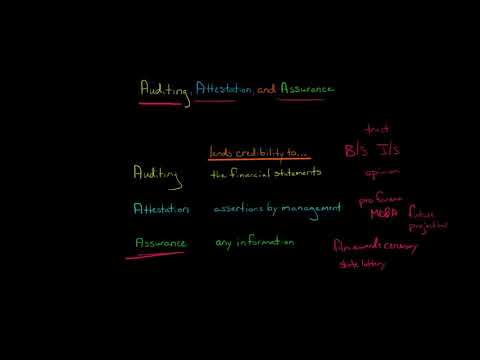 Auditing, Attestation, and Assurance
trust
lends credibility to...
B/S I/S
Auditing the financial statements opinion
pro forma
Attestation assertions by management MD&A future
projections
Assurance any information film awards ceremony
state lottery